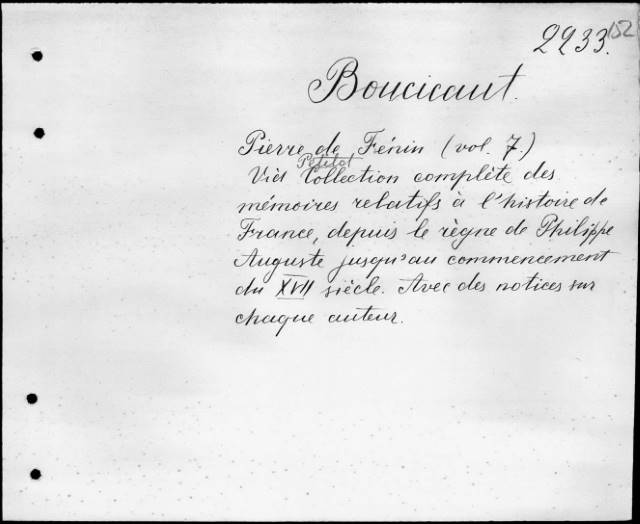 2233. 152
Boucicaut.
Pierre de Fénin (vol. 7.)
Petitot
Vid Collection complète des
mémoires relatifs à l'histoire de
France, depuis le règne de Philippe
Auguste jusqu'au commencement
du XVII siècle. Avec des notices sur
chaque auteur.